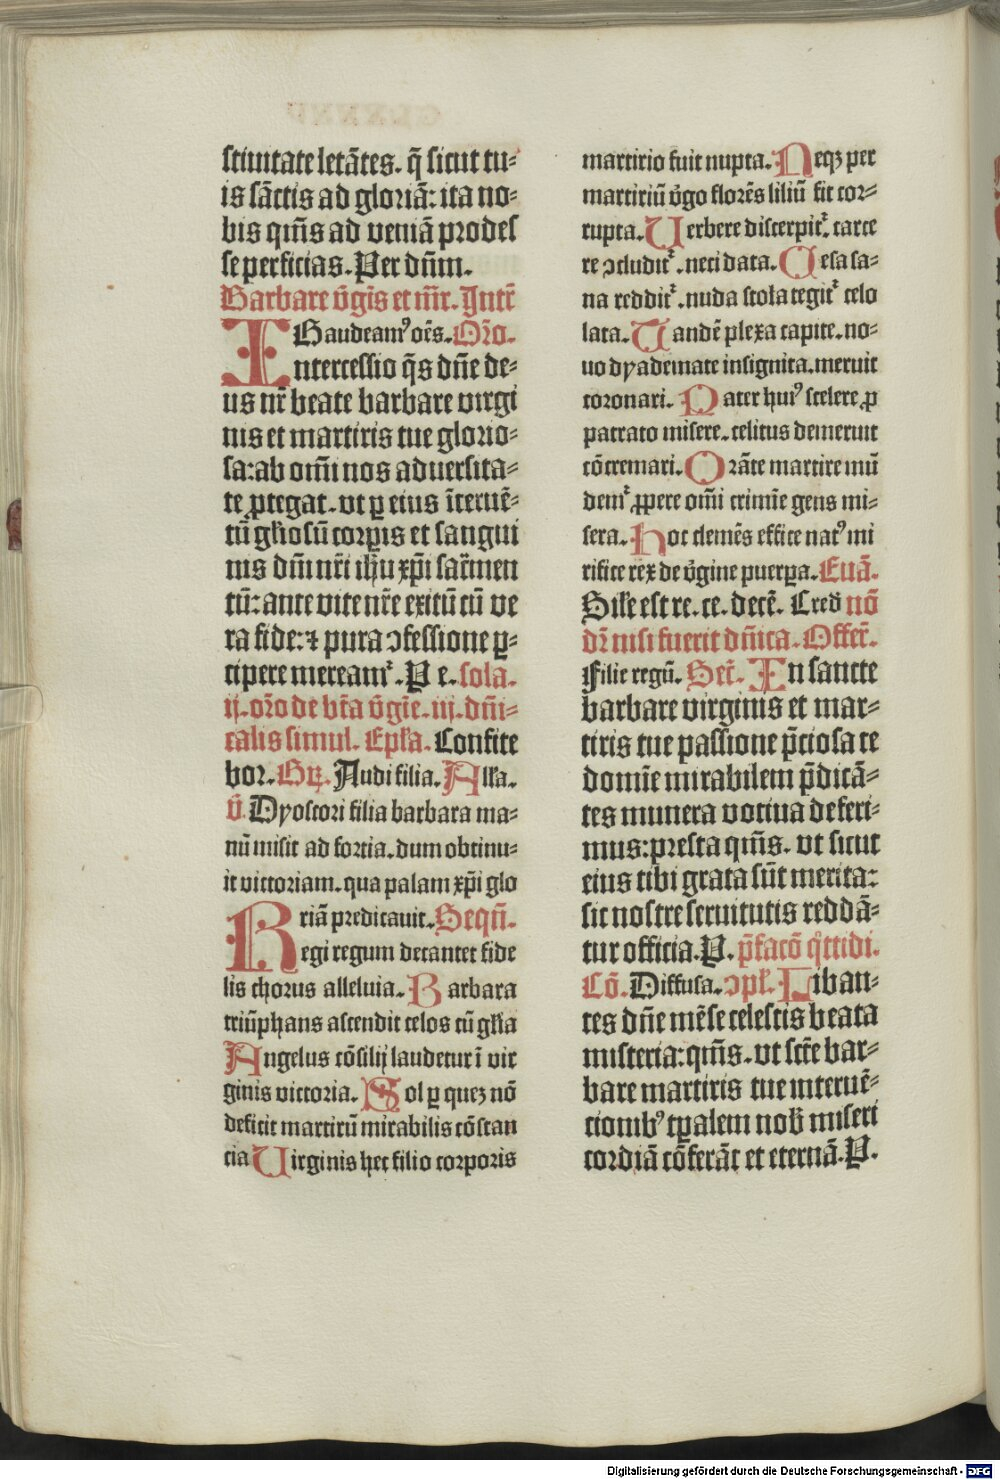 stiuitate letãtes. q̃ sicut tu⸗
is sãctis ad gloriã: ita no⸗
bis qm̃s ad veniã prodes
se perficias. Per dñm.
Barbare v̓gĩs et mr̃. Intr̃
Gaudeamꝰ oẽs. Or̃o.
Intercessio q̃s dñe de⸗
us nr̃ beate barbare virgi
nis et martiris tue glorio⸗
sa: ab om̃i nos aduersita⸗
te ꝓtegat. vt ꝑ eius ĩteruẽ⸗
tũ gl̓iosũ corpis et sangui
nis dñi nr̃i ihũ xp̃i sacr̃men
tũ: ante vite nr̃e exitũ cũ ve
ra fide: ⁊ pura ꝯfessione ꝑ⸗
cipere mereamr̉. P e. sola.
ij. or̃o de bt̃a v̓gĩe. iij. dñi⸗
calis simul. Epl̃a. Confite
bor. Gr̃. Audi filia. All̃a.
v̓. Dyoscori filia barbara ma⸗
nũ misit ad fortia. dum obtinu⸗
it victoriam. qua palam xp̃i glo
riã predicauit. Sequñ.
Regi regum decantet fide
lis chorus alleluia. Barbara
triũphans ascendit celos cũ gl̃ia
Angelus cõsilij laudetur ĩ vir
ginis victoria. Sol ꝑ quez nõ
deficit martirũ mirabilis cõstan
cia Uirginis hec filio corporis
martirio fuit nupta. Neqꝫ per
martiriũ v̓go florẽs liliũ fit cor⸗
rupta. Uerbere discerpit̉. carce
re ꝯcludit̉. neci data. Cesa sa⸗
na reddit̉. nuda stola tegit̉ celo
lata. Tandẽ plexa capite. no⸗
uo dyademate insignita. meruit
coronari. Pater huiꝰ scelere ꝓ
patrato misere. celitus demeruit
cõcremari. Orãte martire mũ
dem̉ ꝓpere om̃i crimĩe gens mi⸗
sera. Hoc clemẽs effice natꝰ mi
rifice rex de v̓gine puerpa. Euã.
Sil̓e est re. ce. decẽ. Cred̓ nõ
dr̃ nisi fuerit dñica. Offer̃.
Filie regũ. Secr̃. En sancte
barbare virginis et mar⸗
tiris tue passĩone p̃ciosa te
domĩe mirabilem p̃dicã⸗
tes munera votiua deferi⸗
mus: presta qm̃s. vt sicut
eius tibi grata sũt merita:
sic nostre seruitutis reddã⸗
tur officia. P. p̃facõ q̊ttidi.
Cõ. Diffusa. ꝯpl̃. Liban⸗
tes dñe mẽse celestis beata
misteria: qm̃s. vt scẽ bar⸗
bare martiris tue interuẽ⸗
tionibꝰ tꝑalem nob̓ miseri
cordiã cõferãt et eternã. P.
Digitalisierung gefördert durch die Deutsche Forschungsgemeinschaft - DFG